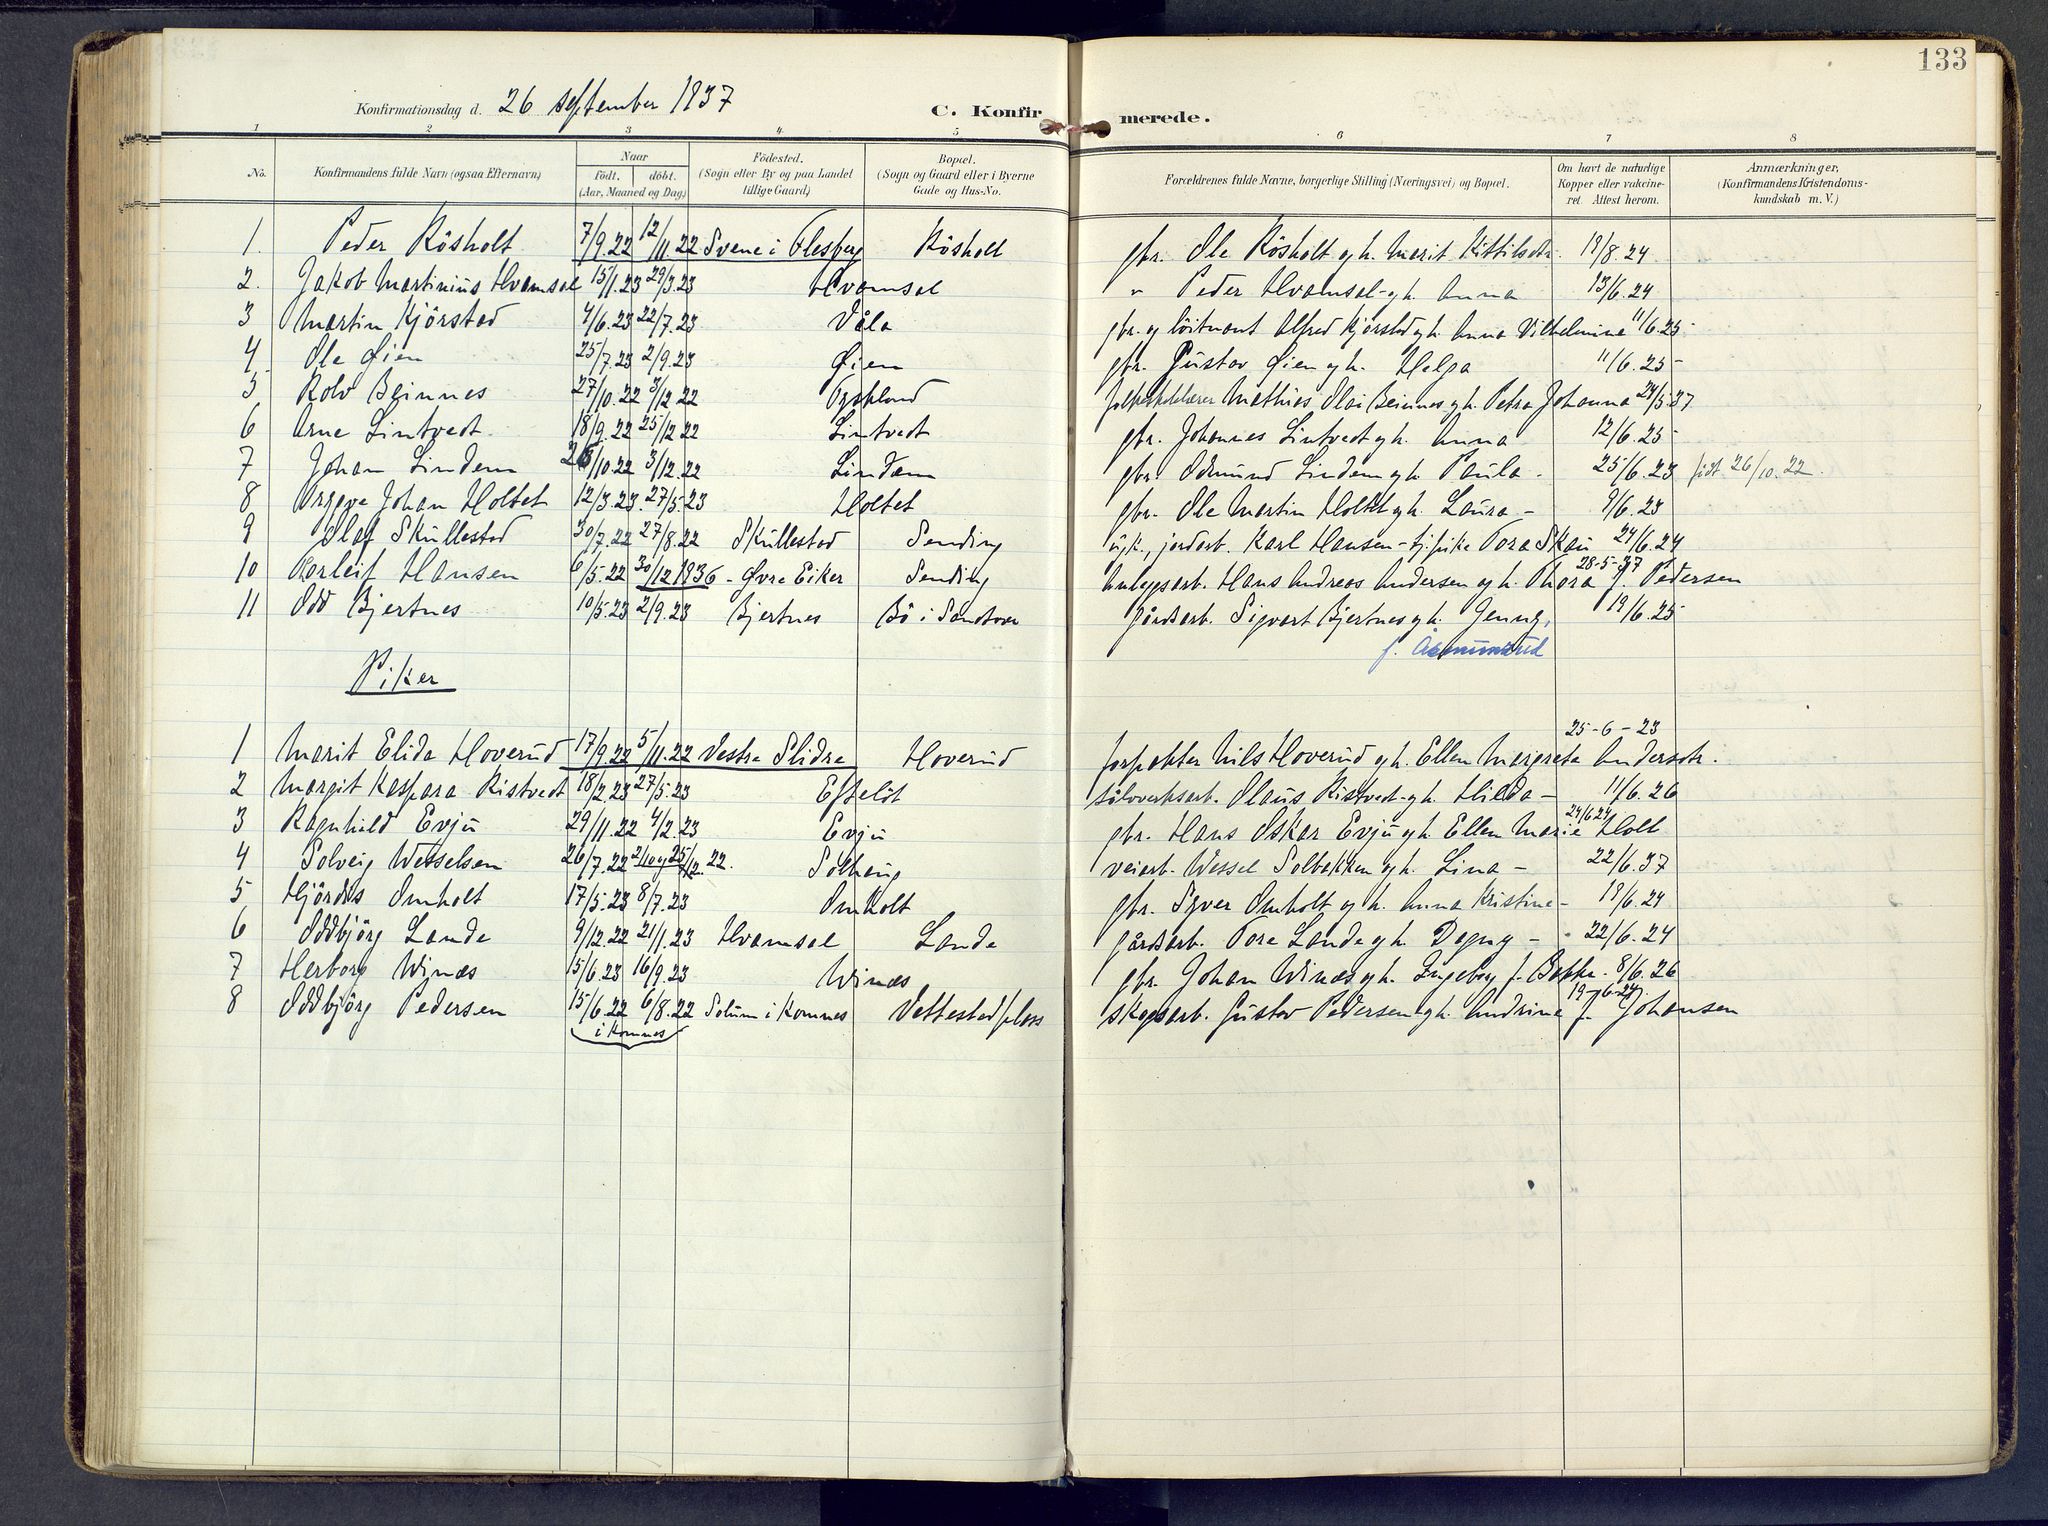 133
Konfirmationsdag d. 26 september 1937
C. Konfirmerede.
1 2 3 4. 5 6 7 8
No. Konfirmandens fulde Navn (ogsaa Efternavn) Naar födt. döbt. (Aar, Maaned og Dag) Födested. (Sogn eller By og paa Landet tillige Gaard) Bopæl. (Sogn og Gaard eller i Byerne Gade og Hus-No. Forældrenes fulde Navne, borgerlige Stilling (Næringsvei) og Bopæl. Om havt de naturlige Kopper eller vakcineret. Attest herom. Anmærkninger, (Konfirmandens Kristendomskundskab m. V.)
1. Peder Kösholt 7/9.22 12/11.22 Svene i Flesberg Kösholt gbr. Ole Kösholt og h. Marit Kittilsdtr. 19/8.24
2. Jakob Martinius Hvamsal 15/1.23 29/3.23 Hvamsal " Peder Hvamsal og h. Anna 13/6.24
3 Martin Kjörstad 4/6.23 22/7.23 Våla gbr. og löitnant Alfred Kjörstad og h. Anna Vilhelmine 11/6.25
4 Ole Øien 25/7.23 2/9.23 Øien gbr. Gustav Øien og h. Helga 11/6.25
5 Rolv Beinnes 27/10.22 3/12.22 folkeskolelærer Mathies Olai Beinnes og h. Petra Johanna 24/5.37
6 Arne Lintvedt 18/9.22 25/12.22 Lintvedt gbr. Johannes Lintvedt og h. Anna 12/6.25
7 Johan Lindem 26/10.22 3/12.22 Lindem gbr. Odmund Lindem og h. Paula 25/6.23 födt 26/10.22.
8 Trygve Johan Holtet 12/3.23. 27/5.23 Holtet gbr. Ole Martin Holtet og h. Laura 9/6.23
9 Olaf Skullestad 30/7.22 27/8.22 Skullestad Sending ugk., jordarb. Karl Hansen - tj.pike Tora Skau 24/6.24
10 Torleif Hansen 6/5.22 30/12 1936 - Øvre Eiker Sending Anleggsarb. Hans Andreas Andersen og h. Thora f. Pedersen 28-5-37
11 Odd Bjertnes 10/5.23 2/9.23 Bjertnes Bö i Sandsvær gårdsarb. Sigvart Bjertnes og h. Jenny, 19/6.25
f. Åsmundrud
Piker
1 Marit Elida Hoverud 17/9.22 5/11.22 Vestre Slidre Hoverud forpakter Nils Hoverud og h. Ellen Margrete Andersdtr. 25-6-23
2 Margit Kaspara Ristvedt 18/2.23 27/5.23 Efteløt sölvverksarb. Olaus Ristvedt og h. Hilda 11/6.26
3 Ragnhild Evju 29/11.22 4/2.23 Evju gbr. Hans Oskar Evju og h. Ellen Marie Holt 24/6.24
4 Solveig Wesselsen 26/7.22 2/10 og 25/12.22. Solhaug veiarb. Wessel Solbakken og h. Lina 22/6.37
5 Hjördis Omholt 17/5.23 8/7.23 Omholt gbr. Syver Omholt og h. Anna Kristine 19/6.24
6 Oddbjörg Lande 9/12.22 21/1.23 Hvamsal Lande gårdsarb. Tore Lande og h. Dagny 22/6.24
7 Herborg Winæs 15/6.23 16/9.23 Winæs gbr. Johan Winæs og h. Ingeborg f. Bakke 8/6.26
8 Oddbjörg Pedersen 15/6.22 6/8.22 Solum i Komnes Vettestad/plass skogsarb. Gustav Pedersen og h. Andrine f. Johansen 19-6-24
i Komnes